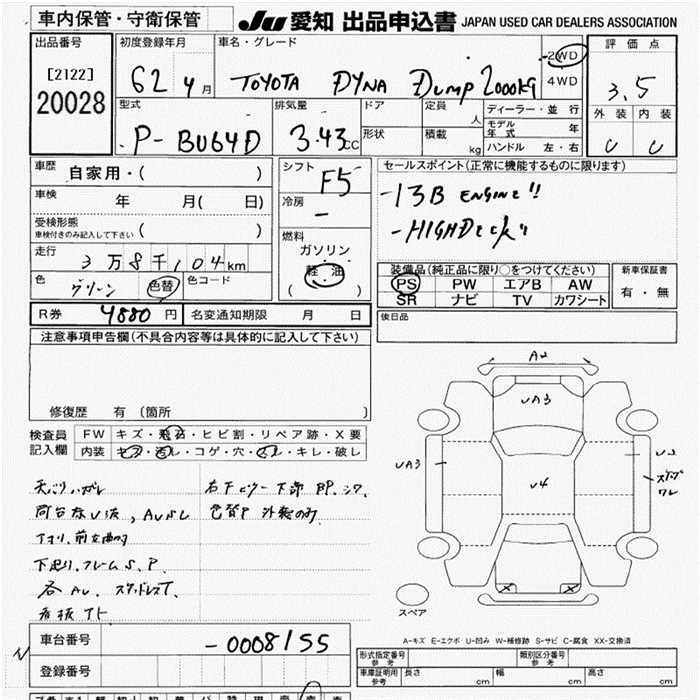 車内保管・守衛保管
JU 愛知 出品申込書 JAPAN USED CAR DEALERS ASSOCIATION
出品番号
[2122]
20028
初度登録年月
62 4月
車名・グレード
TOYOTA DYNA Dump 2000kg
2WD
4WD
評価点
3.5
外装 内装
C C
型式
P-BU64D
排気量
3.43CC
ドア
形状
定員
人
積載
kg
ディーラー・並行
モデル年式 年
ハンドル 左・右
車歴
自家用・( )
車検
年 月( 日)
受検形態
車検付きのみ記入して下さい ( )
走行
3万8千104km
色
グリーン 色替
色コード
シフト
F5
冷房
-
燃料
ガソリン
軽油
( )
セールスポイント(正常に機能するものに限ります)
-13B ENGINE!!
-HIGH Deck!!
装備品(純正品に限り○をつけてください)
PS PW エアB AW
SR ナビ TV カワシート
新車保証書
有・無
R券 4880円
名変通知期限 月 日
後日品
注意事項申告欄(不具合内容等は具体的に記入して下さい)
修復歴 有 (箇所 )
検査員
記入欄
FW キズ・飛石・ヒビ割・リペア跡・X要
内装 キズ・汚レ・コゲ・穴・スレ・キレ・破レ
下廻り、フレームS、P.
各AU. スタッドレスT.
看板下ト
色替P 外装のみ
A2
UA3
UA3
U4
スペア
A-キズ E-エクボ U-凹み W-補修跡 S-サビ C-腐食 XX-交換済
車台番号
-0008155
登録番号
形式指定番号
参考
類別区分番号
参考
車庫証明用
参考
長さ cm
幅 cm
高さ cm